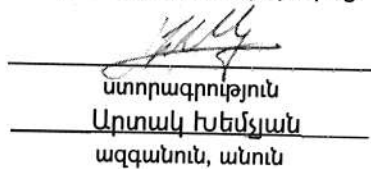 ստորագրություն
Արտակ Խեմչյան
ազգանուն, անուն